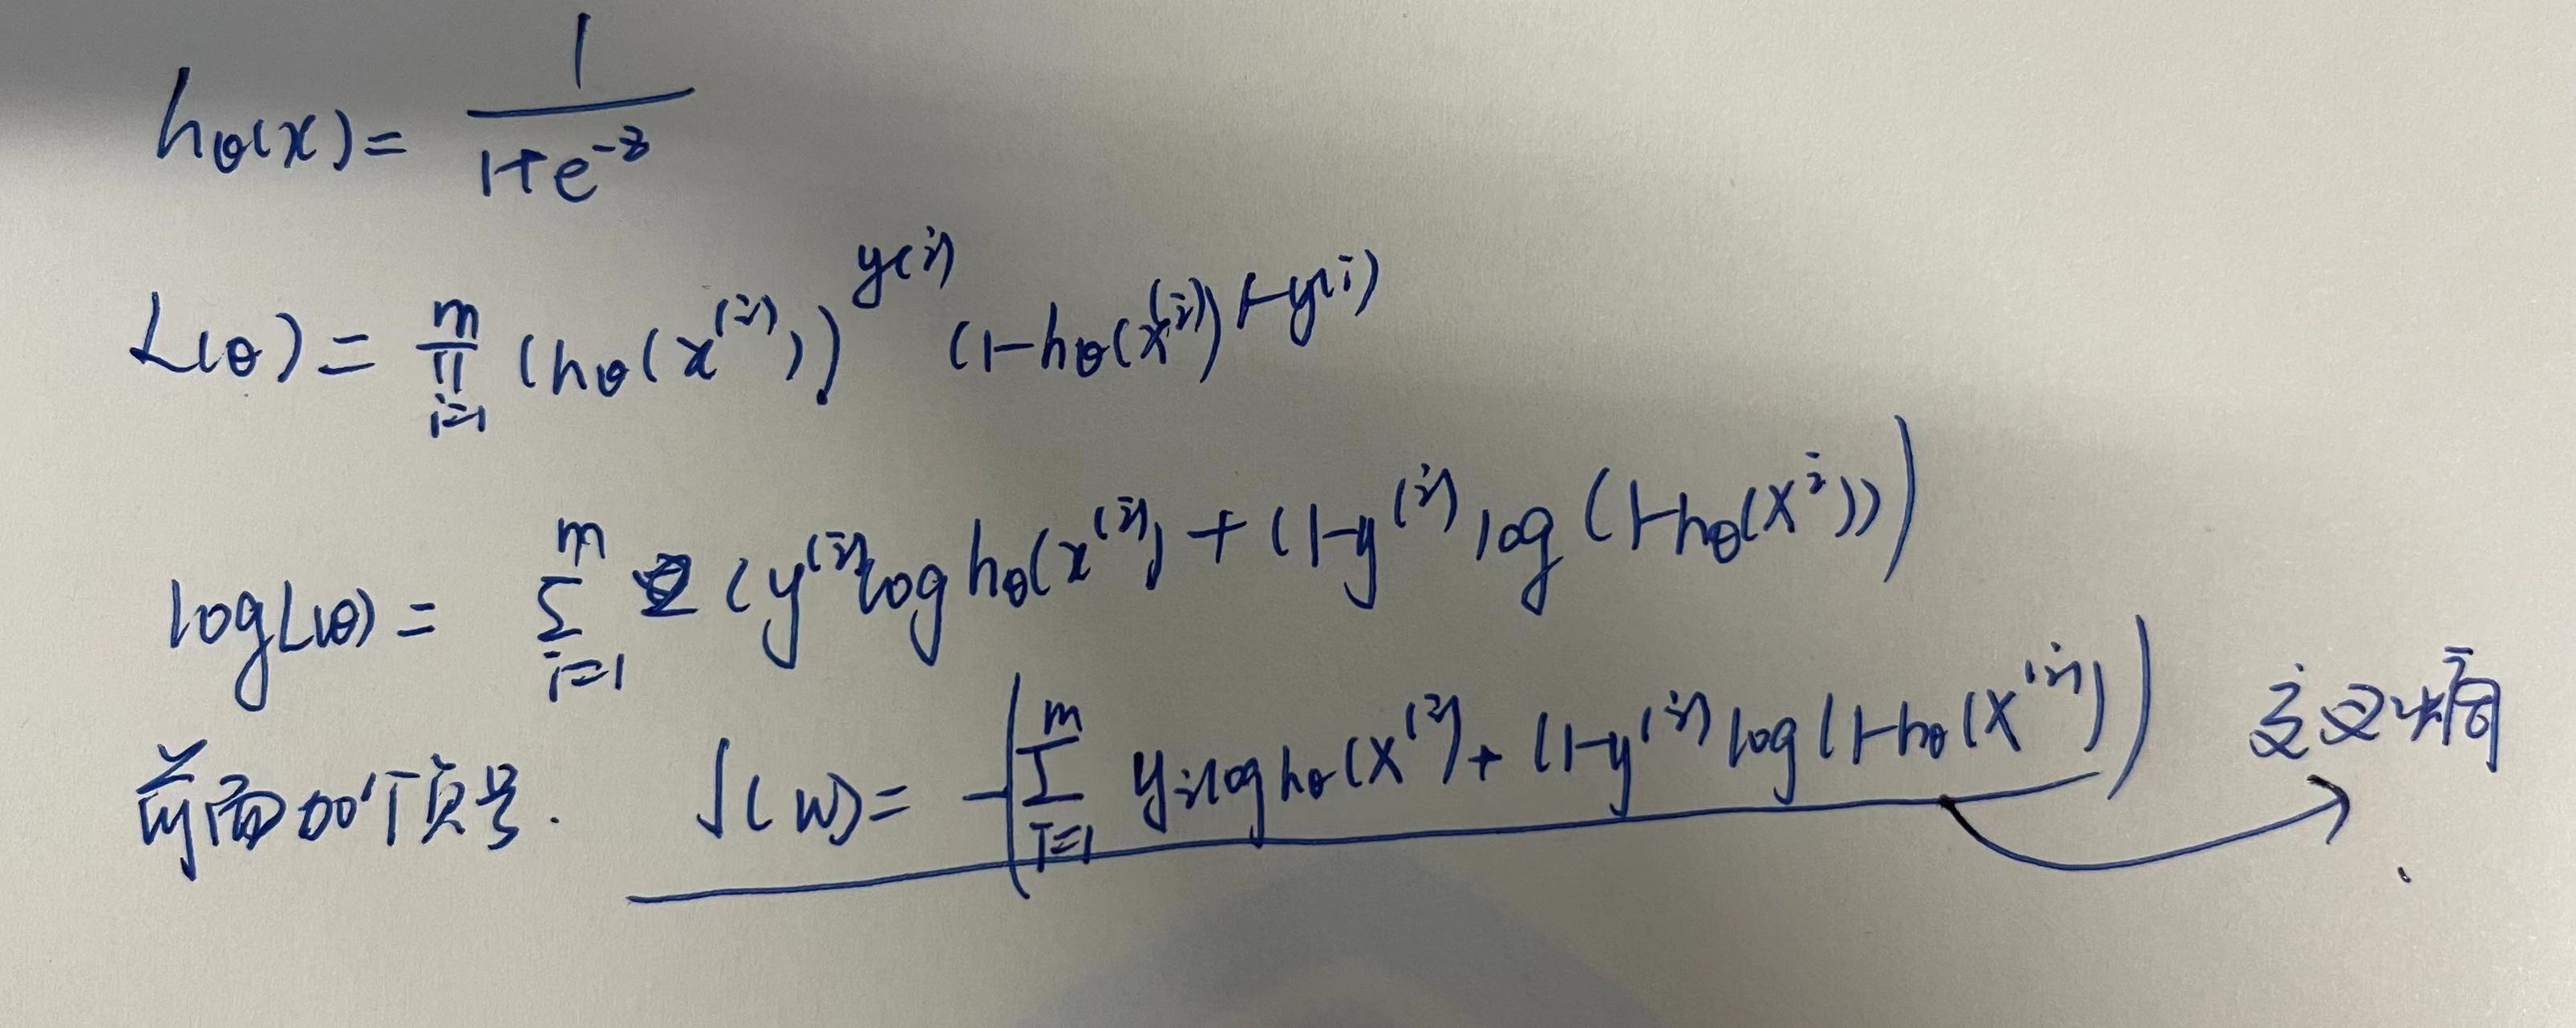 hθ(x) = 1 / (1+e^-z)
L(θ) = ∏_{i=1}^{m} (hθ(x^(i)))^y(i) (1-hθ(x^(i))^1-y(i)
logL(θ) = ∑_{i=1}^{m} (y^(i)log hθ(x^(i)) + (1-y^(i)) log (1-hθ(x^i)))
前面加个负号. J(w) = -(∑_{i=1}^{m} y_i log hθ(x^(i)) + (1-y^(i)) log(1-hθ(x^(i))) 交叉熵